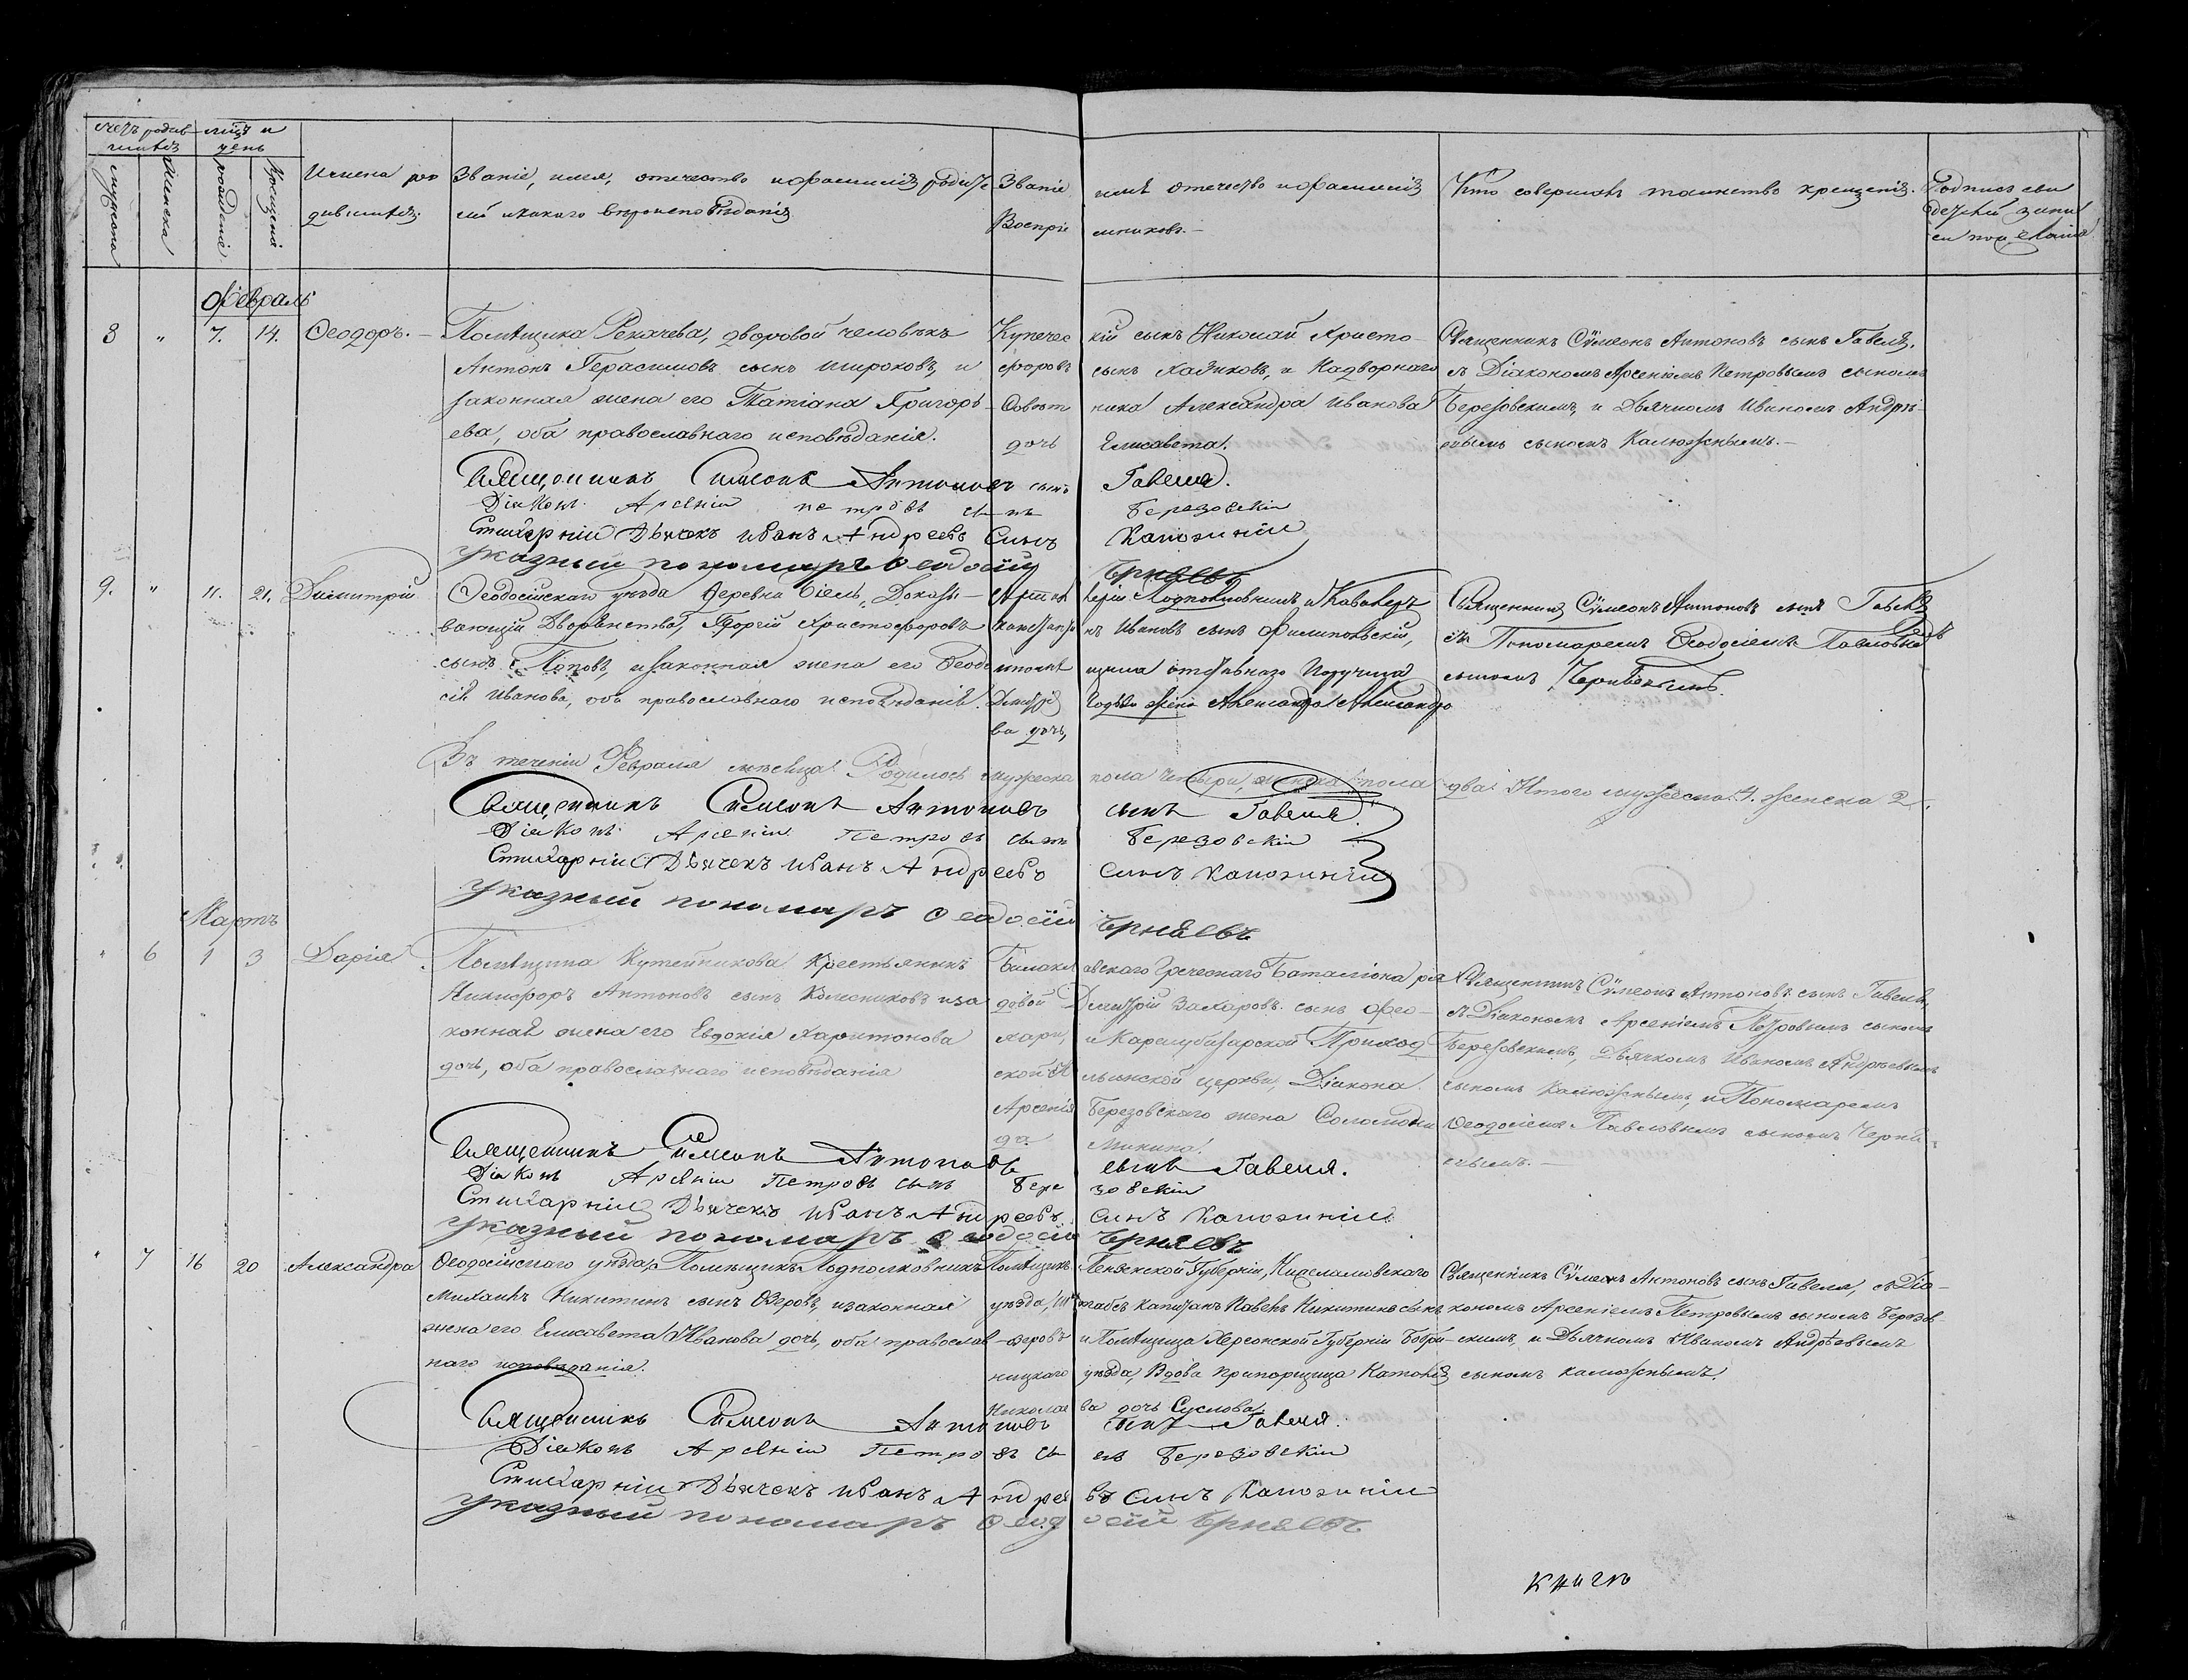 счетъ родив- мѣсяцъ и
шихся день
мужеска
женска
рожденія
крещенія
Имена ро
дившихся.
Званіе, имя, отечество и фамилія родите
лей и какого вѣроисповѣданія
Званіе имя отечество и фамилія
Воспріе мниковъ.
Кто совершалъ таинство крещенія.
Подпись сви
дѣтелей запи
си по желанію
февраль
8 " 7. 14. Ѳеодоръ.
Помѣщика Рекачева, дворовой человѣкъ
Антонъ Герасимовъ сынъ Широковъ, и
законная жена его Татіана Григорь-
ева, оба православнаго исповѣданія.
Купечес кій сынъ Николай Христо-
форовъ сынъ Хадиковъ, и Надворнаго
Совѣт ника Александра Иванова
дочь Елисавета.
Священникъ Сѵмеонъ Антоновъ сынъ Гавеля,
съ Діакономъ Арсеніемъ Петровымъ сыномъ
Березовскимъ, и Дьячкомъ Иваномъ Андрѣ-
евымъ сыномъ Калюжнымъ.
Священникъ Симеонъ Антоновъ сынъ Гавеля.
Діаконъ Арсеній Петровъ сынъ Березовскій
Стихарній Дьячекъ Иванъ Андреевъ Синъ Калюжній
Указный пономаръ Ѳеодосій Чернявъ
9. " 11. 21. Димитрій
Ѳеодосійскаго уѣзда деревни Біель, Доказы-
вающій Дворянство, Георгій Христофоровъ
сынъ Поповъ, и законная жена его Ѳеодо
сія Иванова, обѣ православнаго исповѣданія.
Артил леріи Подполковникъ и Кавалеръ
Константи нъ Ивановъ сынъ Филиповскій,
и помѣ щица отставнаго Поручика
жена Александра Александро
ва дочь,
Священникъ Сѵмеонъ Антоновъ сынъ Гавеля
съ Пономаремъ Ѳеодосіемъ Павловымъ
сыномъ
Въ теченіи Февраля мѣсяца Родилось мужеска пола четыри, женска пола два. Итого мужеска 4. женска 2.
Священникъ Симеонъ Антоновъ сынъ Гавеля.
Діаконъ Арсеній Петровъ сынъ Березовскій
Стихарній Дьячекъ Иванъ Андреевъ Синъ Калюжній
Указный пономаръ Ѳеодосій Чернявъ
Мартъ
" 6 1 3 Дарія
Помѣщика Кутейникова Крестьянинъ
Никифоръ Антоновъ сынъ Колесниковъ и за
конная жена его Евдокія Харитонова
дочь, оба православнаго исповѣданія
Балакла вскаго Греческаго Баталліона ря
довой Дмитрій Захаровъ сынъ Фео-
хари, и Карасубазарской Приход
ской Н льинской церкви Діакона
Арсенія Березовскаго жена Соломони
да Микина.
Священникъ Сѵмеонъ Антоновъ сынъ Гавеля,
съ Діакономъ Арсеніемъ Петровымъ сыномъ
Березовскимъ, Дьячкомъ Иваномъ Андрѣевымъ
сыномъ Калюжнымъ, и Пономаремъ
Ѳеодосіемъ Павловымъ сыномъ Черня-
евымъ.
Священникъ Симеонъ Антоновъ сынъ Гавеля.
Діаконъ Арсеній Петровъ сынъ Березовскій
Стихарній Дьячекъ Иванъ Андреевъ Синъ Калюжній
Указный пономаръ Ѳеодосій Чернявъ
" 7 16 20 Александра
Ѳеодосійскаго уѣзда Помѣщикъ Подполковникъ
Михаилъ Никитинъ сынъ Озеровъ, и законная
жена его Елисавета Иванова дочь, оба православ-
наго исповѣданія.
Помѣщикъ Пензенской Губерніи, Нижеломовскаго
уѣзда, Штабсъ Капитанъ Павелъ Никитинъ сынъ
Озеровъ и Помѣщица Херсонской Губерніи Бобри-
ницкаго уѣзда, Вдова Прапорщица
Николае ва дочь Суслова
Священникъ Сѵмеонъ Антоновъ сынъ Гавеля, съ Діа-
кономъ Арсеніемъ Петровымъ сыномъ Березов-
скимъ, и Дьячкомъ Иваномъ Андрѣевымъ
сыномъ Калюжнымъ.
Священникъ Симеонъ Антоновъ сынъ Гавеля.
Діаконъ Арсеній Петровъ сынъ Березовскій
Стихарній Дьячекъ Иванъ Андреевъ Синъ Калюжній
Указный пономаръ Ѳеодосій Чернявъ
книгѣ